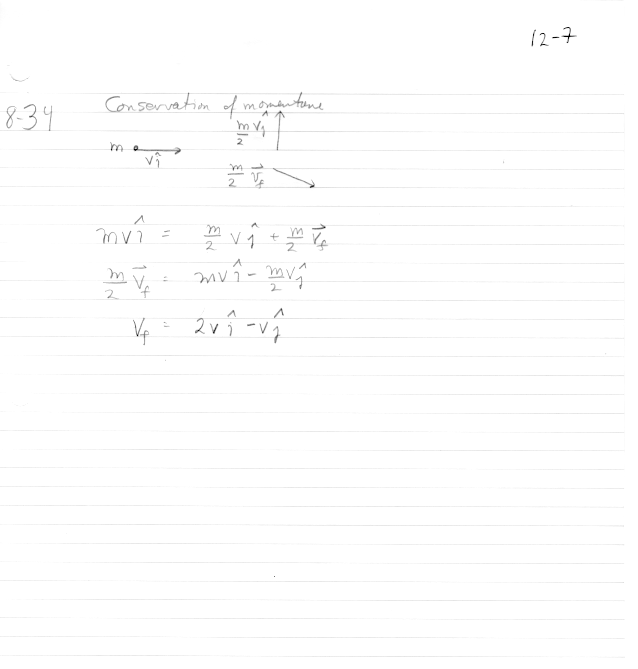 12-7
8-34 Conservation of momentum
m/2 v ĵ
m
v î
m/2 v⃗f
m v î = m/2 v ĵ + m/2 v⃗f
m/2 v⃗f = m v î - m/2 v ĵ
vf = 2v î - v ĵ